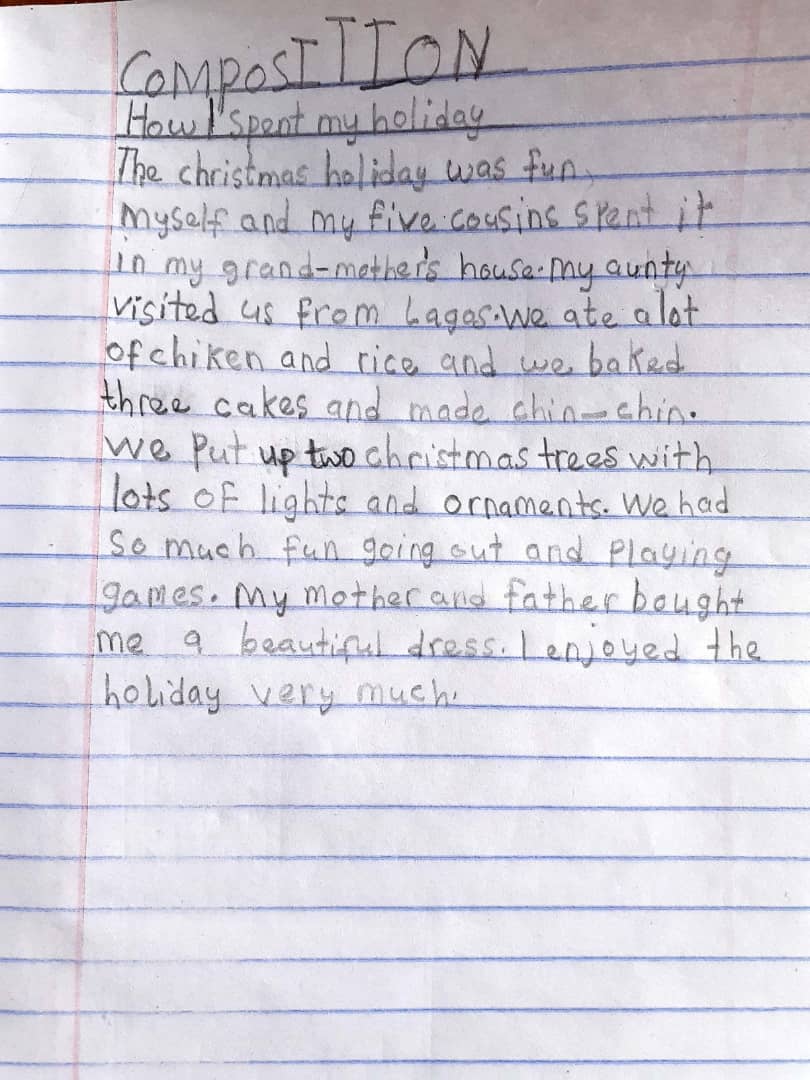 COMPOSITION
How I spent my holiday
The christmas holiday was fun.
myself and my five cousins spent it
in my grand-mother's house. my aunty
visited us from Lagos. We ate alot
of chiken and rice and we baked
three cakes and made chin-chin.
We put up two christmas trees with
lots of lights and ornaments. We had
so much fun going out and playing
games. My mother and father bought
me a beautiful dress. I enjoyed the
holiday very much.